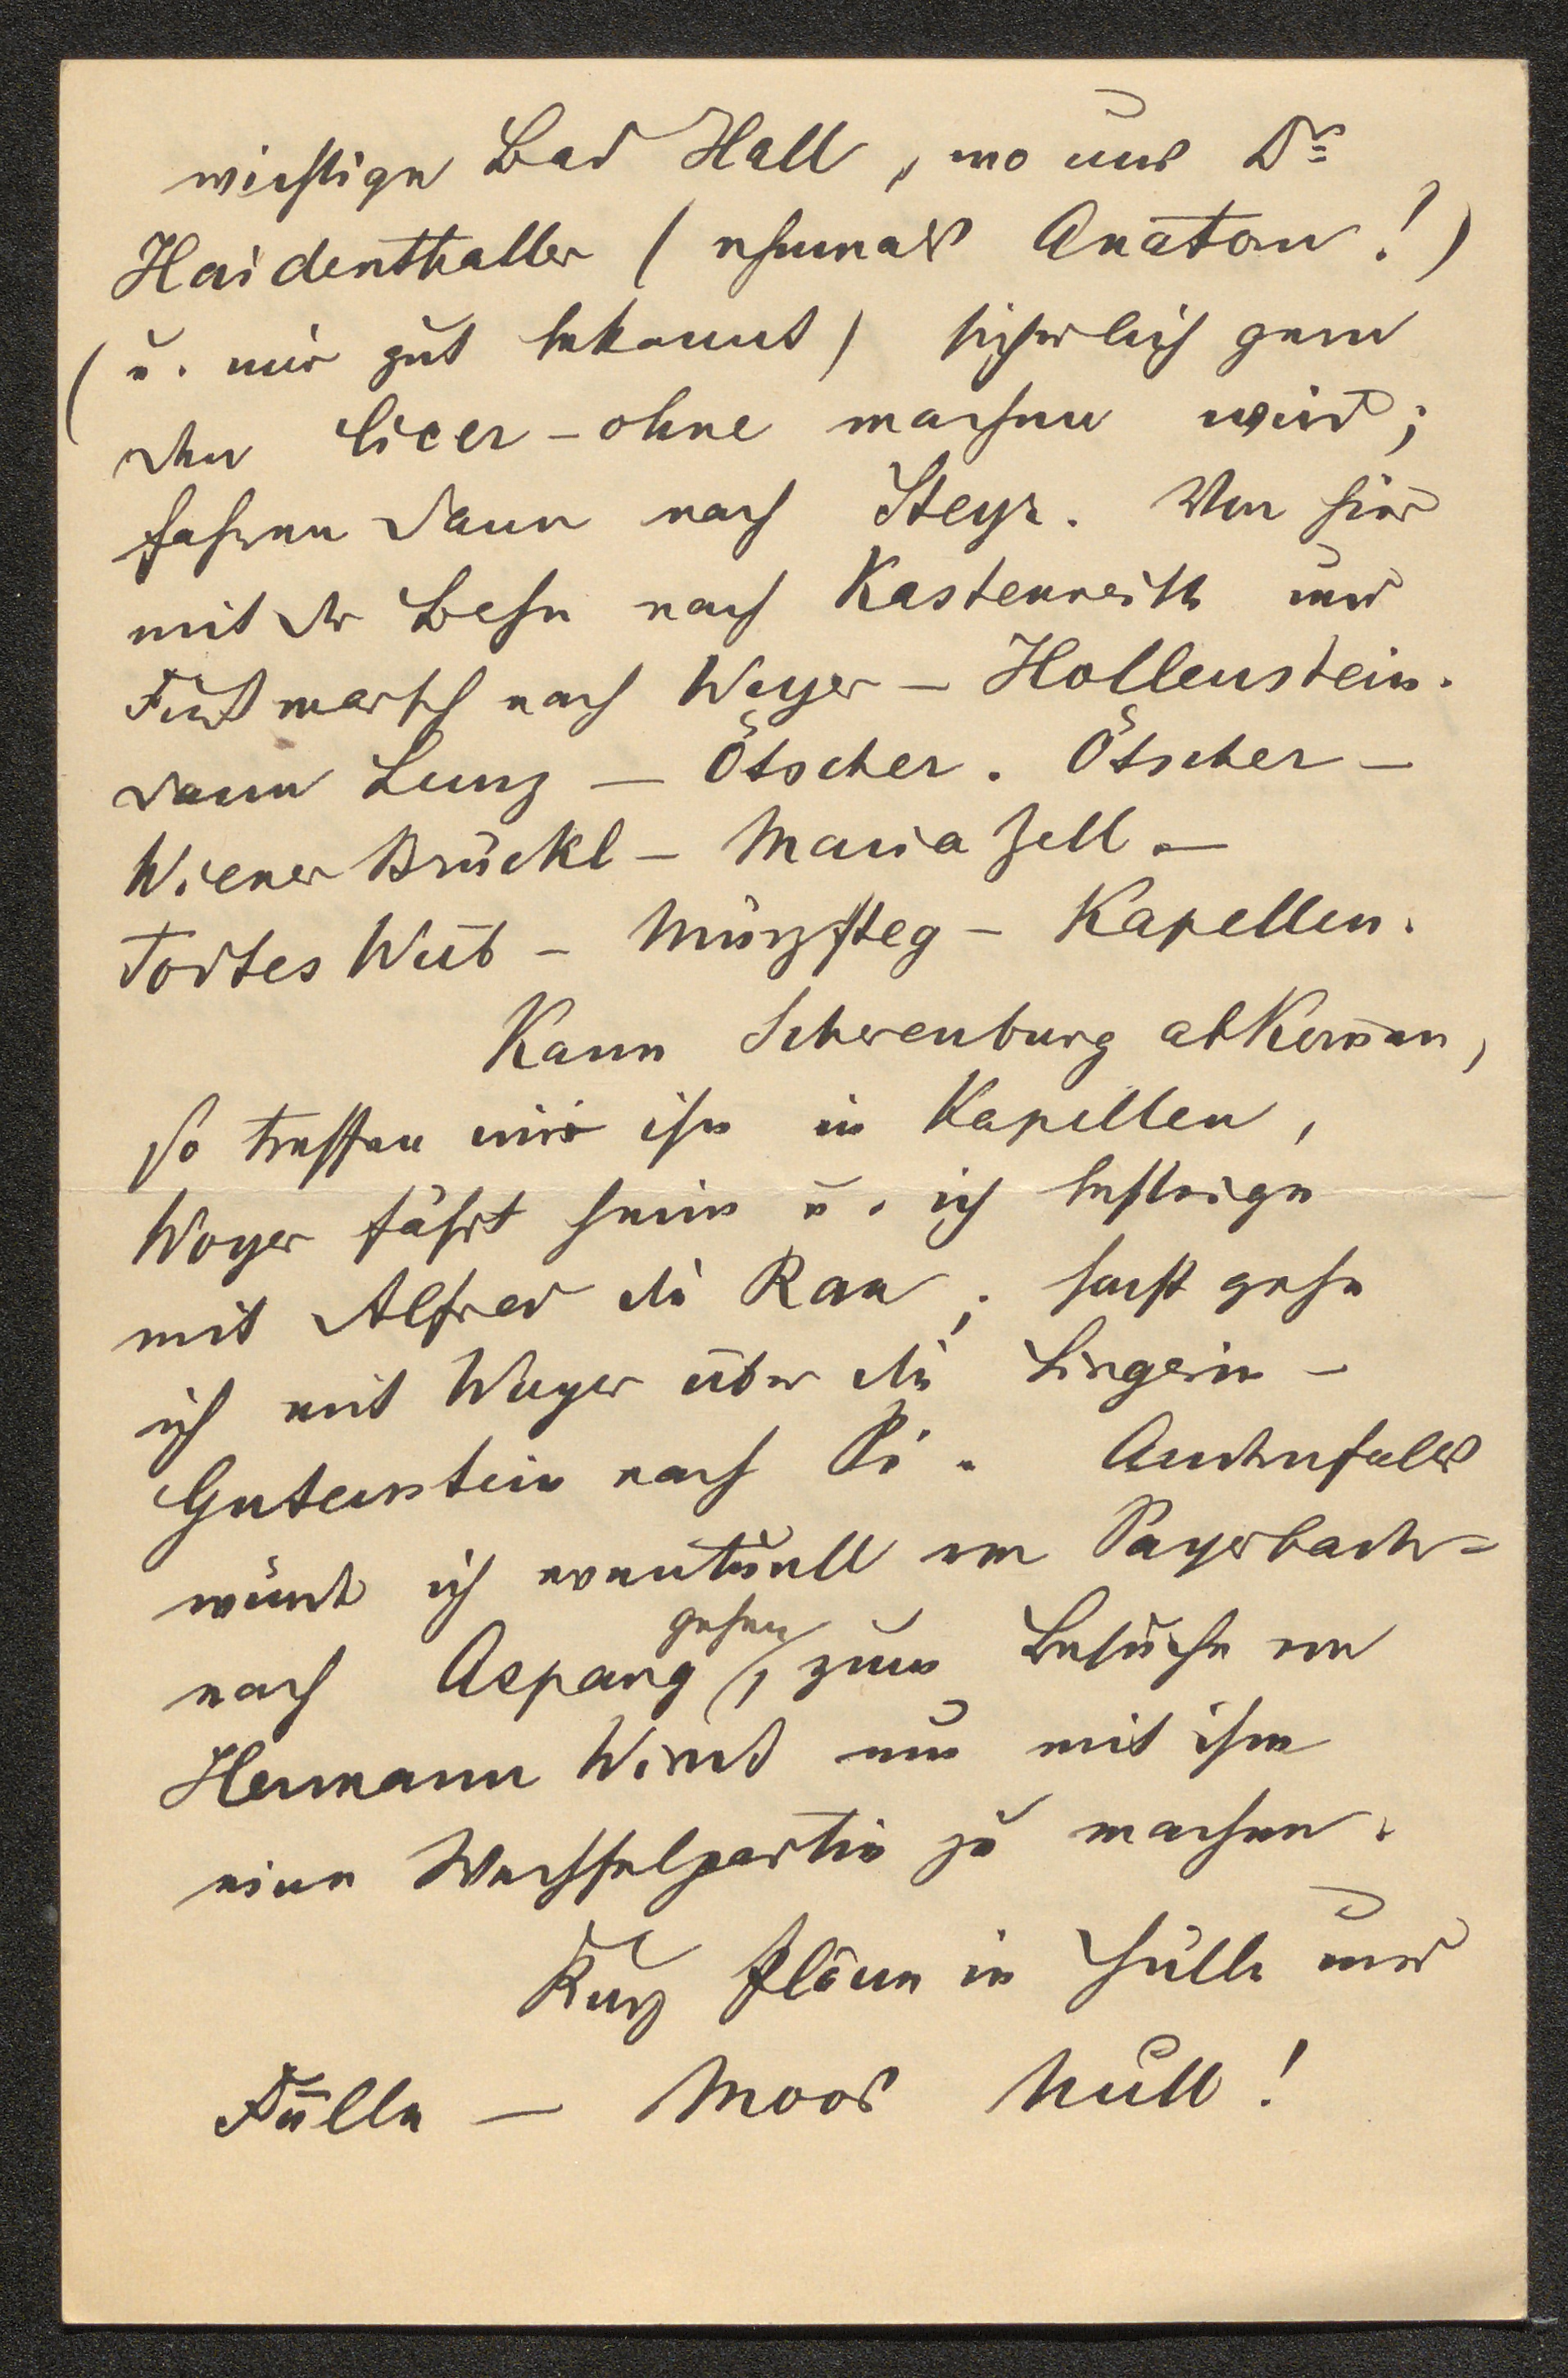 wichtige Bad Hall, wo uns Dr
Haidenthaller (ehemals Anatom!)
(u. mir gut bekannt) sicherlich gern
den Cicer-ohne machen wird;
fahren dann nach Steyr. Von hier
mit der Bahn nach Kastenreith und
Fußmarsch nach Weyer – Hollenstein.
dann Lunz – Ötscher. Ötscher –
Wiener Brückl – Maria Zell –
Todtes Weib – Mürzsteg – Kapellen.
Kann Scherenburg abkommen,
so treffen wir ihn in Kapellen,
Woyer fährt heim u. ich besteige
mit Alfred die Rax; sonst gehe
ich mit Woyer über die
Gutenstein nach Pi. Andernfalls
würde ich eventuell von Payerbach-
nach Aspang gehen, zum Besuche von
Hermann Wirt um mit ihm
eine Wechselpartie zu machen.
Kurz Pläne in Hülle und
Fülle – Moos Null!